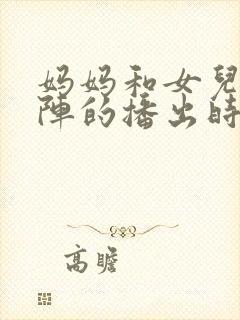 妈妈和女兒
陣的播出時
高瞻